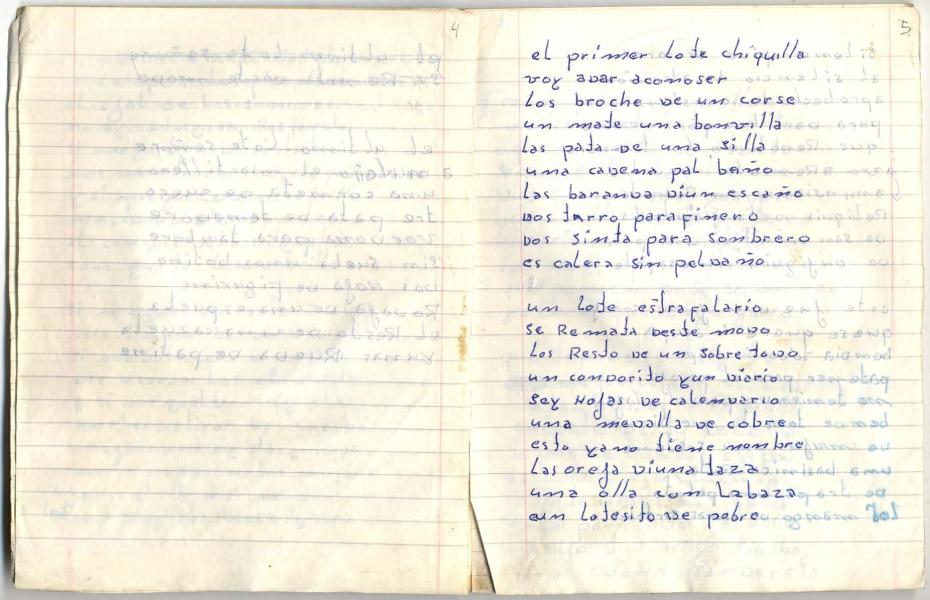 4
5
el primer Lote chiquilla
voy adar aconoser
Los broche de un corse
un mate una bonvilla
Las pata de una silla
una cadena pal baño
Las baranda diun escaño
dos tarro parafinero
dos sinta para sombrero
es calera sin peldaño
un Lote estrafalario
se Remata deste modo
Los Resto de un sobre todo
un condorito yun diario
sey Hojas de calendario
una medalla de cobre
esto yano tiene nombre
Las oreja diuna taza
una olla con Labaza
aun Lotesito de pobre